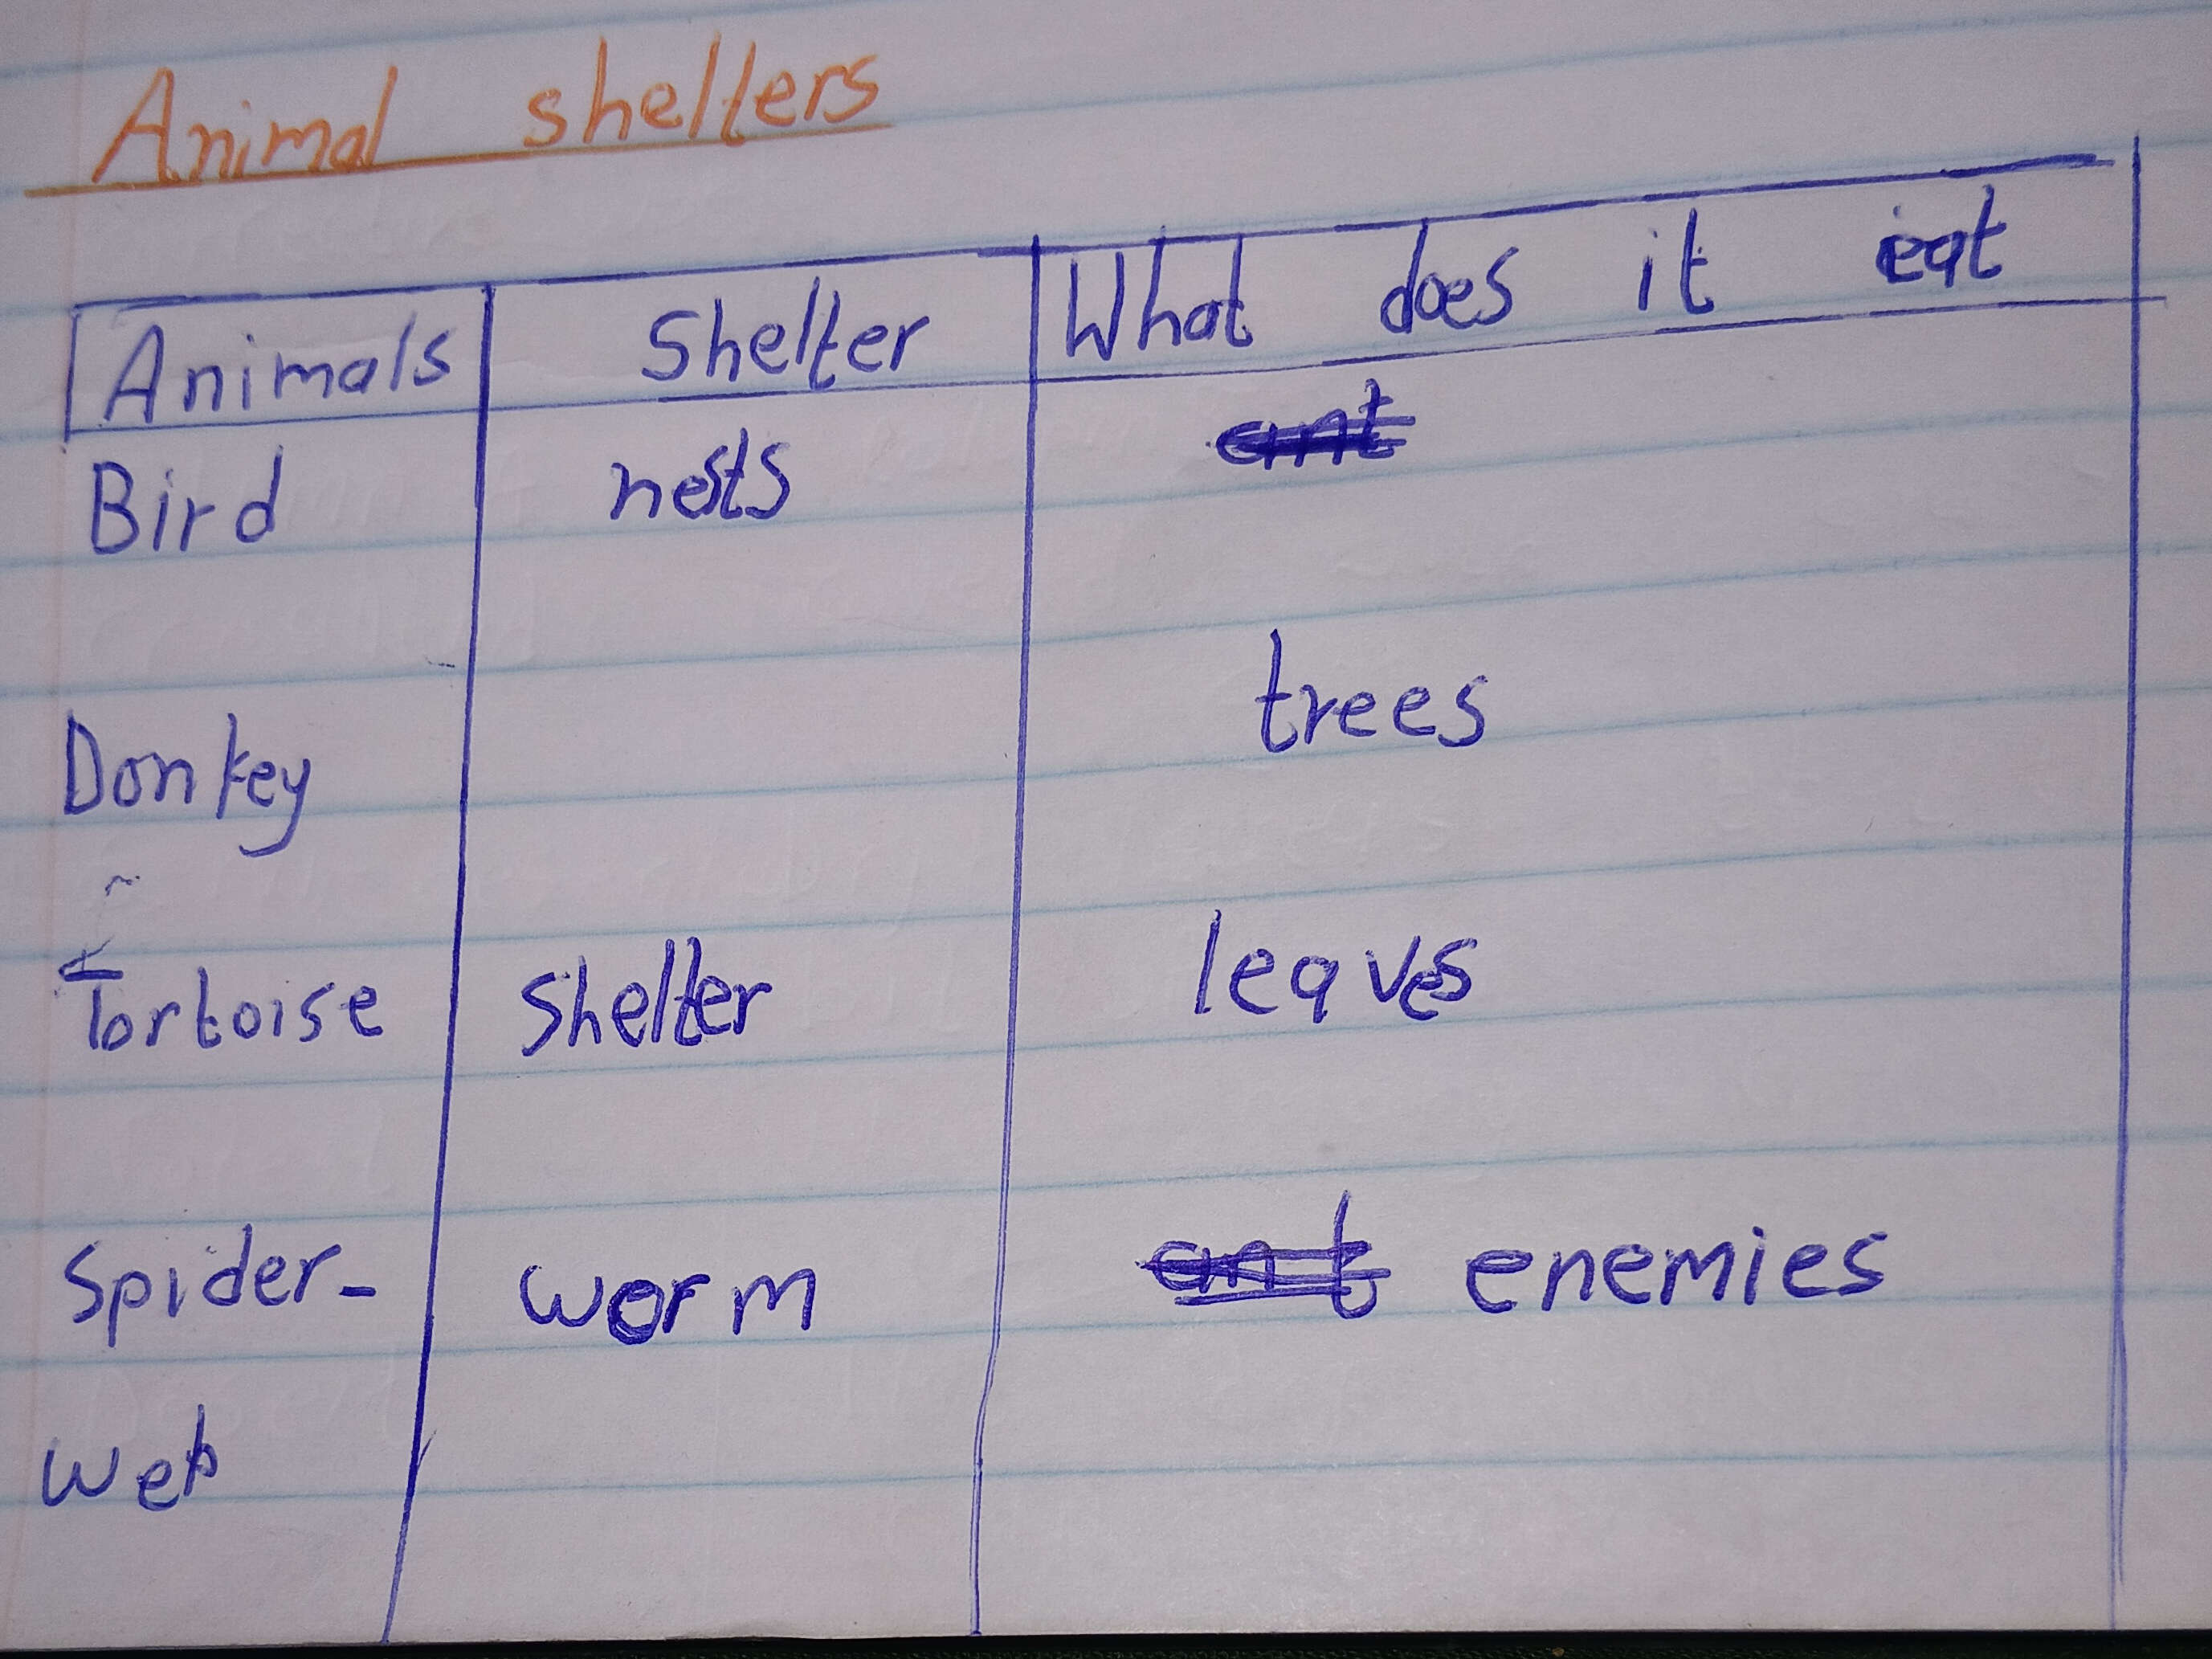 Animal shelters
Animals Shelter What does it eat
Bird nests ant
Donkey trees
Tortoise Shelter leaves
Spider- worm ant enemies
Web